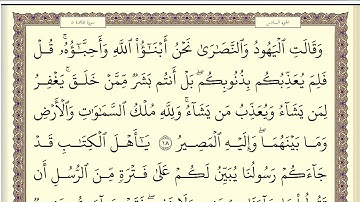 وَقَالَتِ ٱلْيَهُودُ وَٱلنَّصَٰرَىٰ نَحْنُ أَبْنَٰٓؤُا۟ ٱللَّهِ وَأَحِبَّٰٓؤُهُۥ ۚ قُلْ
فَلِمَ يُعَذِّبُكُم بِذُنُوبِكُم ۖ بَلْ أَنتُم بَشَرٌ مِّمَّنْ خَلَقَ ۚ يَغْفِرُ
لِمَن يَشَآءُ وَيُعَذِّبُ مَن يَشَآءُ ۚ وَلِلَّهِ مُلْكُ ٱلسَّمَٰوَٰتِ وَٱلْأَرْضِ
وَمَا بَيْنَهُمَا ۖ وَإِلَيْهِ ٱلْمَصِيرُ ١٨ يَٰٓأَهْلَ ٱلْكِتَٰبِ قَدْ
جَآءَكُمْ رَسُولُنَا يُبَيِّنُ لَكُمْ عَلَىٰ فَتْرَةٍ مِّنَ ٱلرُّسُلِ أَن